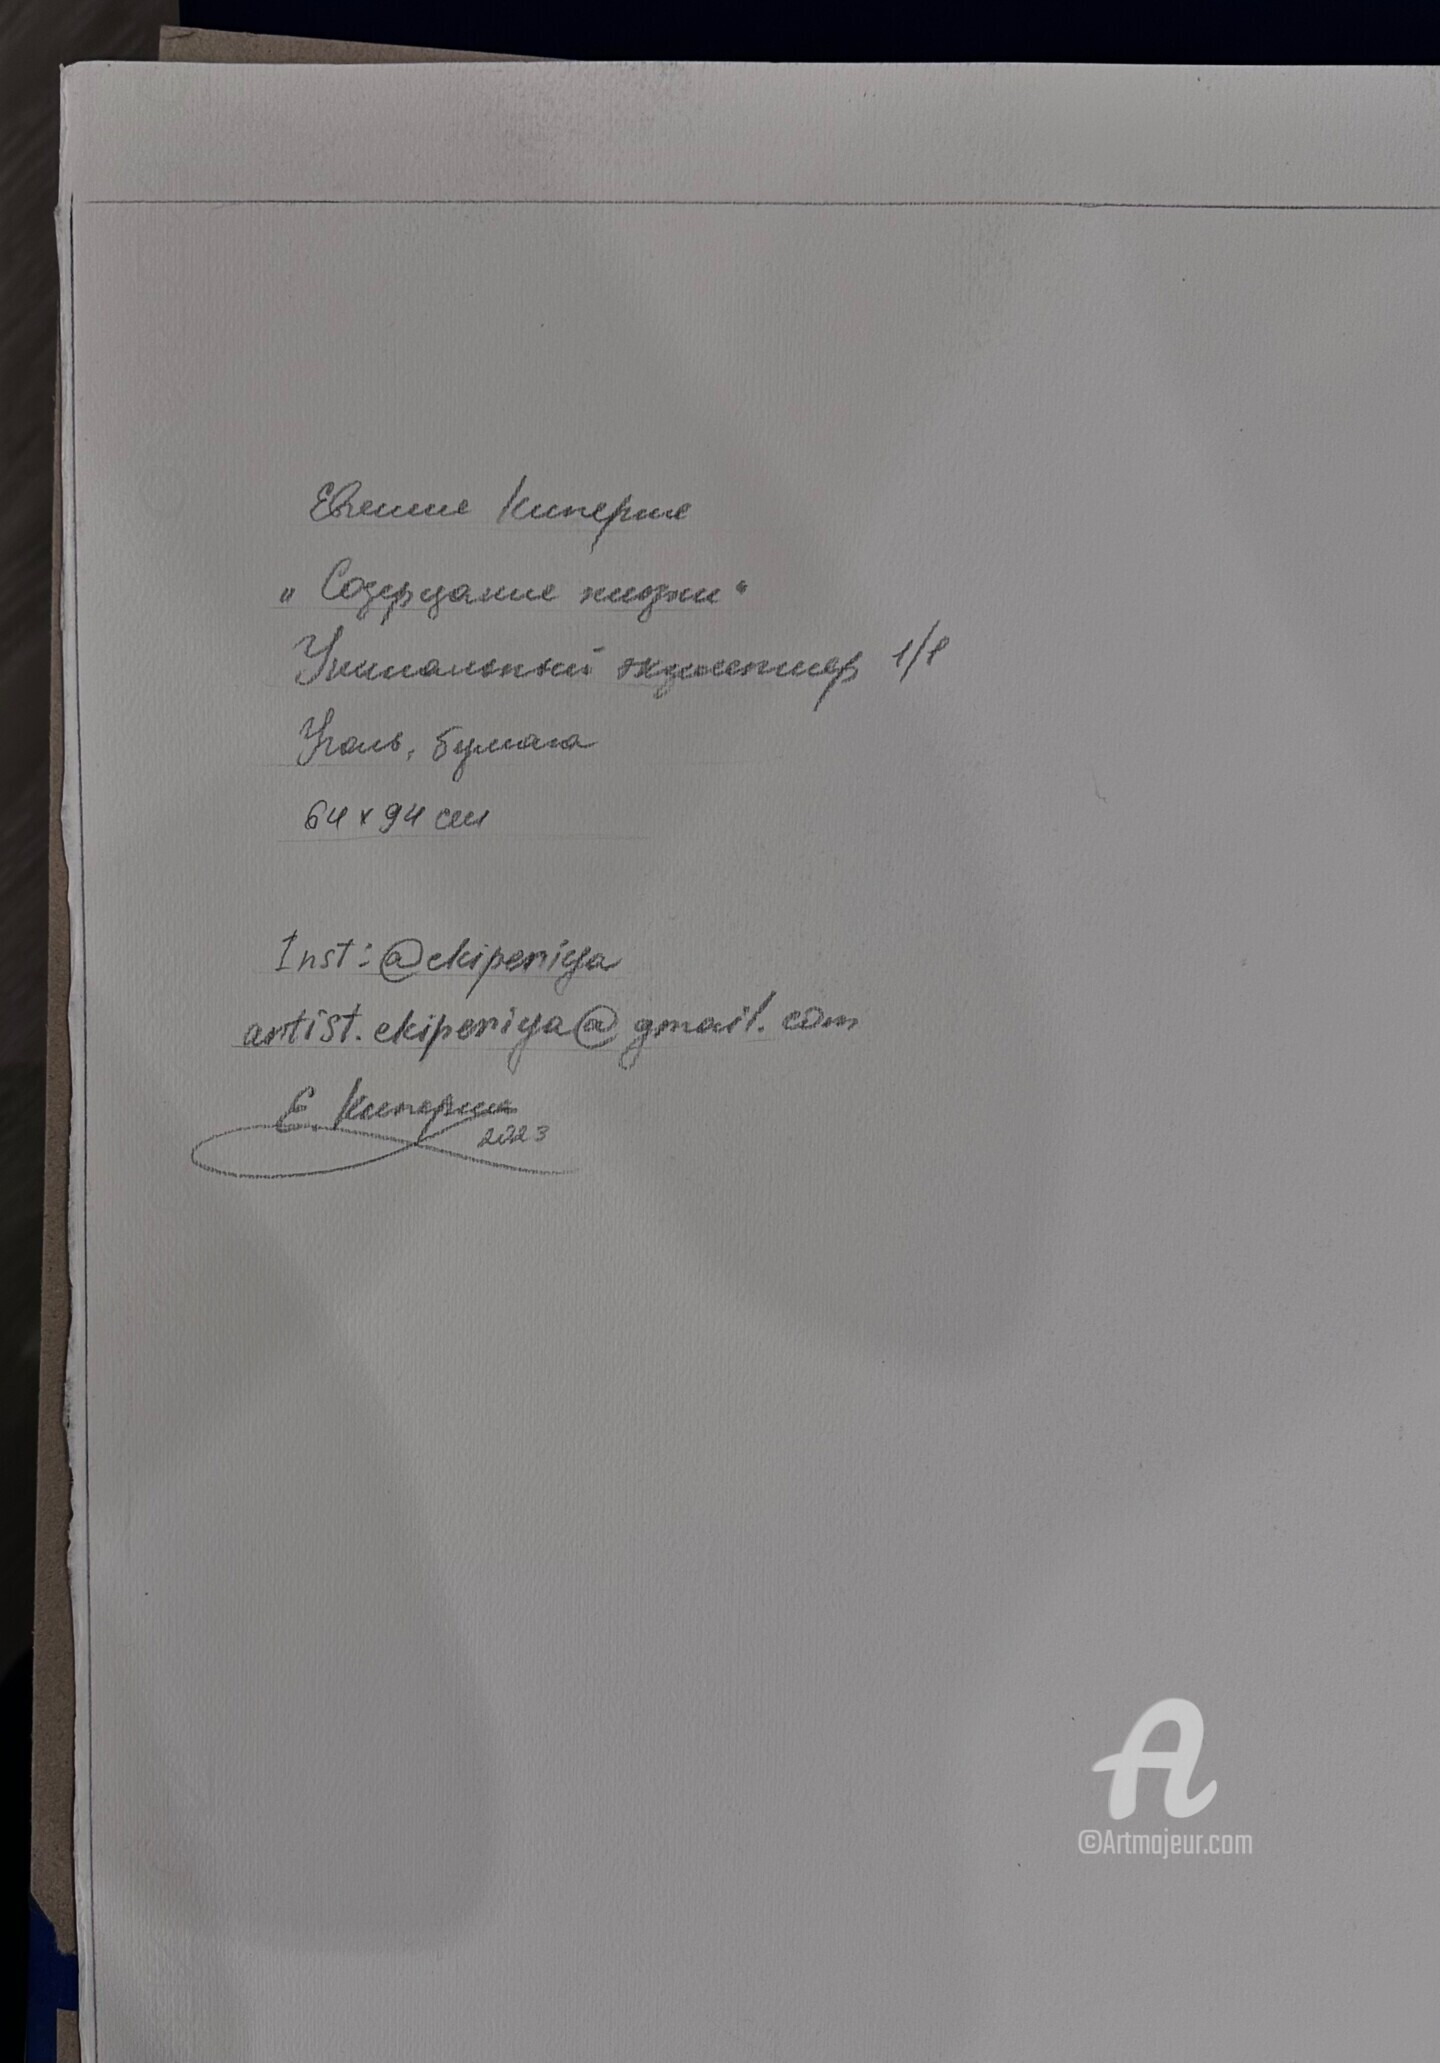 Евгение Киперше
„Созерцание жизни"
Уникальный экземпляр 1/1
Уголь, бумага
64 x 94 см
Inst: @ekiperiya
artist.ekiperiya@gmail.com
Е. Киперше
2023
A
©Artmajeur.com